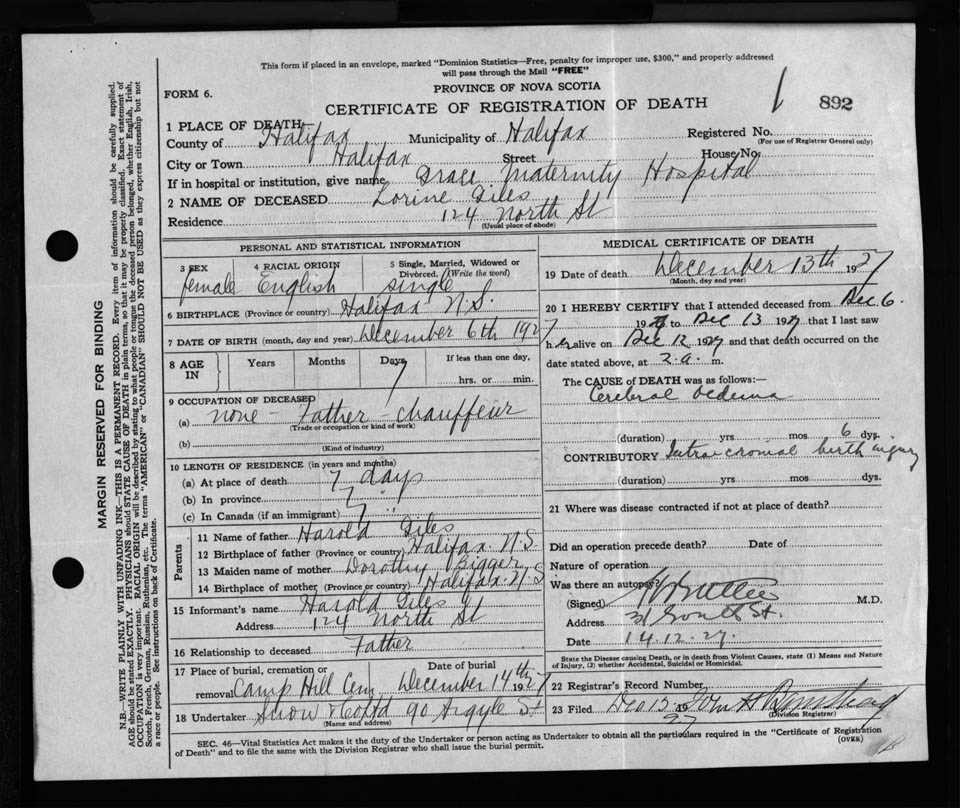 This form if placed in an envelope, marked "Dominion Statistics—Free, penalty for improper use, $300," and properly addressed
will pass through the Mail "FREE"
FORM 6.
PROVINCE OF NOVA SCOTIA
CERTIFICATE OF REGISTRATION OF DEATH
892
1 PLACE OF DEATH
County of Halifax Municipality of Halifax Registered No.
(For use of Registrar General only)
City or Town Halifax Street House No.
If in hospital or institution, give name Grace Maternity Hospital
2 NAME OF DECEASED Lorine Giles
Residence 124 North St
(Usual place of abode)
PERSONAL AND STATISTICAL INFORMATION
3 SEX 4 RACIAL ORIGIN 5 Single, Married, Widowed or Divorced. (Write the word)
female English single
6 BIRTHPLACE (Province or country) Halifax N.S.
7 DATE OF BIRTH (month, day and year) December 6th 1927
8 AGE IN Years Months Days If less than one day,
7 hrs. or min.
9 OCCUPATION OF DECEASED
(a) none - Father - chauffeur
(Trade or occupation or kind of work)
(b)
(Kind of industry)
10 LENGTH OF RESIDENCE (in years and months)
(a) At place of death 7 days
(b) In province 7 "
(c) In Canada (if an immigrant) 7 "
Parents
11 Name of father Harold Giles
12 Birthplace of father (Province or country) Halifax N.S
13 Maiden name of mother Dorothy Bigger
14 Birthplace of mother (Province or country) Halifax N.S
15 Informant's name Harold Giles
Address 124 North St
16 Relationship to deceased Father
17 Place of burial, cremation or Date of burial
removal Camp Hill Cem December 14th 1927
18 Undertaker Snow & Co Ltd 90 Argyle St
(Name and address)
MEDICAL CERTIFICATE OF DEATH
19 Date of death December 13th 1927
(Month, day and year)
20 I HEREBY CERTIFY that I attended deceased from Dec 6.
1927 to Dec 13 1927 that I last saw
h er alive on Dec 12 1927 and that death occurred on the
date stated above, at 2.a. m.
The CAUSE of DEATH was as follows:—
Cerebral oedema
(duration) yrs mos 6 dys.
CONTRIBUTORY Intra-cranial birth injury
(duration) yrs. mos. dys.
21 Where was disease contracted if not at place of death?
Did an operation precede death? Date of
Nature of operation
Was there an autopsy?
(Signed) M.D.
Address 31 South St
Date 14.12.27.
State the Disease causing Death, or in death from Violent Causes, state (1) Means and Nature
of Injury, (2) whether Accidental, Suicidal or Homicidal.
22 Registrar's Record Number
23 Filed Dec 15 1927 Wm H
(Division Registrar)
SEC. 46—Vital Statistics Act makes it the duty of the Undertaker or person acting as Undertaker to obtain all the particulars required in the "Certificate of Registration
of Death" and to file the same with the Division Registrar who shall issue the burial permit.
(OVER)
MARGIN RESERVED FOR BINDING
N.B.—WRITE PLAINLY WITH UNFADING INK—THIS IS A PERMANENT RECORD. Every item of information should be carefully supplied.
AGE should be stated EXACTLY. PHYSICIANS should STATE CAUSE OF DEATH in plain terms, so that it may be properly classified. Exact statement of
OCCUPATION is very important. RACIAL ORIGIN will be described by stating to what people or tongue the deceased person belonged, whether English, Irish,
Scotch, French, German, Russian, Ruthenian, etc. The terms "AMERICAN" or "CANADIAN" SHOULD NOT BE USED as they express citizenship but not
a race or people. See instructions on back of Certificate.